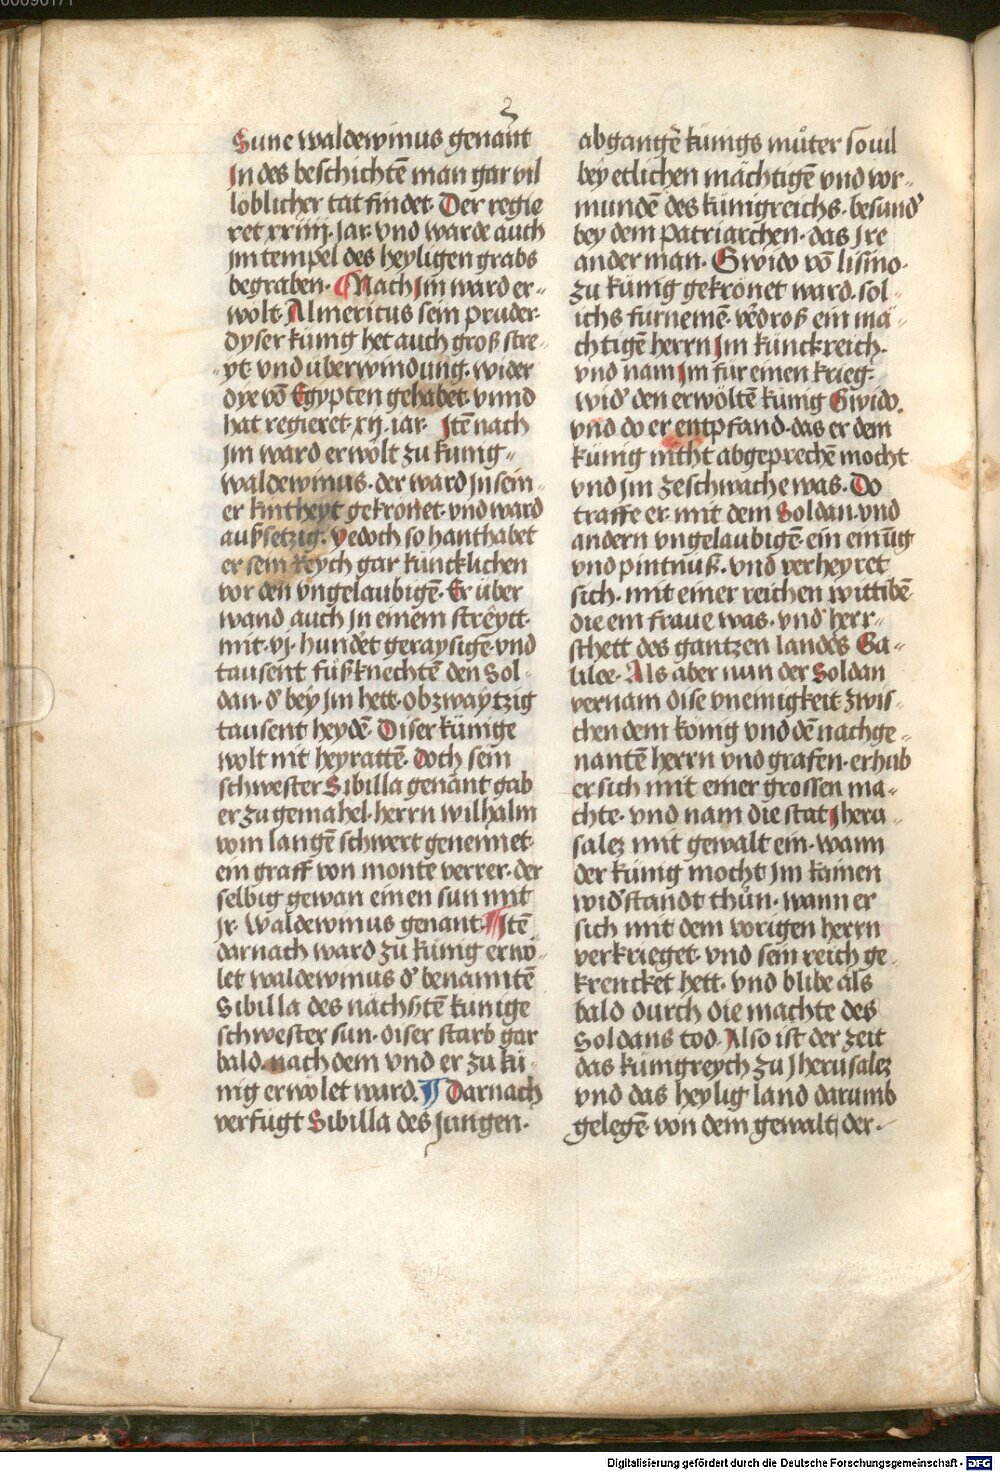 Sune waldewinus genañt
In des beschichtē man gar vil
löblicher tat findet· Der regie
ret xxiiij· iar· vnd warde auch
jm tempel des heyligen grabs
begraben· Nach Im ward er-
wölt· Almericus sein pruder·
dyser künig het auch groß stre-
yt· vnd überwindung· wider
die vō Egypten gehabet· vnnd
hat regieret· xij· iar· Itē nach
jm ward erwölt zu kunig-
waldewinus· der ward jn sein-
er kintheyt gekrönet· vnd ward
außsetzig· yedoch so hanthabet
er sein reych gar küncklichen
vor den vngelaubigē· Er über
wand auch jn einem streytt·
mit· vj· hundēt geraysigē· vnd
tausent fußknechtē den Sol-
dan· d' bey jm hett· ob zwaytzig
tausent heydē· Diser künige
wolt nit heyrattē· Doch sein
schwester Sibilla genānt gab
er zu gemahel· herrn wilhalm
vom langē schwert genennet·
ein graff von monte verrer· der
selbig gewan einen sun mit
jr· waldewinus genant· Itē
darnach ward zu künig erwö-
let waldewinus d' benanntē
Sibilla des nächstē kunige
schwester sun· diser starb gar
bald· nach dem vnd er zu kü-
nig erwölet ward· Darnach
verfugt Sibilla des jungen·
abgangē künigs můter souil
bey etlichen mächtigē vnd vor-
mundē des künigreichs· besund'
bey dem patriarchen· das jre
ander man· Gwido vō lisīno·
zu künig gekrönet ward· sol-
ichs fürnemē· v'droß ein mä-
chtigē herrn Im künckreich·
vnd nam Im für einen krieg·
wid' den erwöltē künig Gwido·
vnd do er entpfand· das er dem
kunig nitht abgeprechē mocht
vnd jm zeschwache was· Do
traffe er· mit dem Soldan· vnd
andern vngelaubigē· ein einüg
vnd pintnuß· vnd verheyret
sich· mit einer reichen wittibē
die ein fraue was· vnd herr-
schett des gantzen landes Ga-
lilee· Als aber nun der Soldan
vernam dise vneinigkeit zwis-
chen dem könig vnd dē nachge-
nantē herrn vnd grafen· erhub
er sich mit einer grossen ma-
chte· vnd nam die stat Jheru-
salez mit gewalt ein· wann
der künig mocht jm kainen
wid'standt thůn· wann er
sich mit dem vorigen herrn
verkrieget· vnd sein reich ge-
krencket hett· vnd blibe als
bald durch die machte des
Soldans tod· Also ist der zeit
das künigreych zu Jherusalez
vnd das heylig land darumb
gelegē· von dem gewalt der·
Digitalisierung gefördert durch die Deutsche Forschungsgemeinschaft - DFG